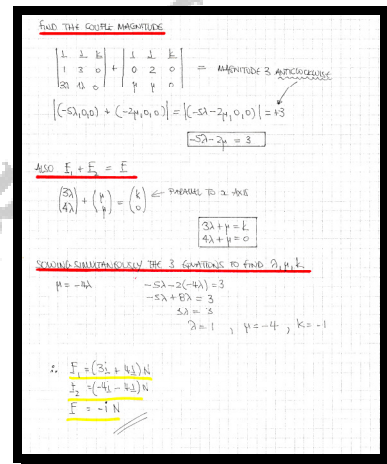 FIND THE COUPLE MAGNITUDE
|i j k; 1 3 0; 3λ 4λ 0| + |i j k; 0 2 0; μ μ 0| = MAGNITUDE 3 ANTICLOCKWISE
|(-5λ,0,0) + (-2μ,0,0)| = |(-5λ-2μ,0,0)| = +3
-5λ-2μ = 3
ALSO F₁ + F₂ = F
(3λ 4λ) + (μ μ) = (k 0) ← PARALLEL TO x AXIS
3λ+μ = k
4λ+μ = 0
SOLVING SIMULTANEOUSLY THE 3 EQUATIONS TO FIND λ, μ, k
μ = -4λ -5λ-2(-4λ) = 3
-5λ+8λ = 3
3λ = 3
λ = 1 , μ = -4 , k = -1
∴ F₁ = (3i + 4j) N
F₂ = (-4i - 4j) N
F = -i N